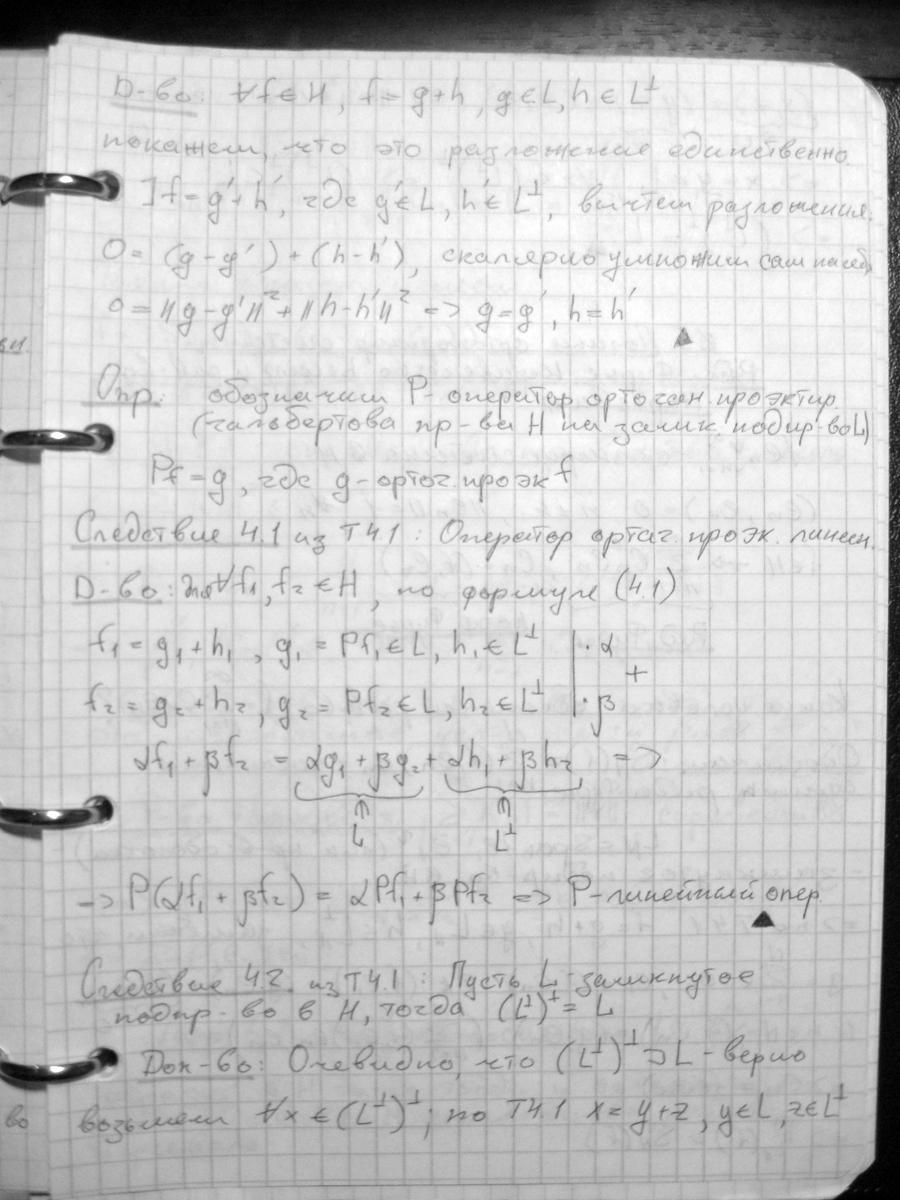 Д-во: ∀f∈H, f = g+h, g∈L, h∈L⊥
покажем, что это разложение единственно
]f = g'+h', где g'∈L, h'∈L⊥, вычтем разложения:
0 = (g-g') + (h-h'), скалярно умножим сам на себя
0 = ||g-g'||² + ||h-h'||² => g=g', h=h'
▲
Опр: обозначим P-оператор ортогон. проэктир.
(гильбертова пр-ва H на замк. подпр-во L)
Pf = g, где g-ортог. проэк f
Следствие 4.1 из Т4.1: Оператор ортог. проэк. линеен.
Д-во: для ∀f₁, f₂ ∈ H, по формуле (4.1)
f₁ = g₁+h₁, g₁ = Pf₁ ∈ L, h₁ ∈ L⊥ | ·α
+
f₂ = g₂+h₂, g₂ = Pf₂ ∈ L, h₂ ∈ L⊥ | ·β
αf₁ + βf₂ = αg₁ + βg₂ + αh₁ + βh₂ =>
∈ ∈
L L⊥
=> P(αf₁ + βf₂) = αPf₁ + βPf₂ => P-линейный опер.
▲
Следствие 4.2 из Т4.1: Пусть L-замкнутое
подпр-во в H, тогда (L⊥)⊥ = L
Док-во: Очевидно, что (L⊥)⊥ ⊃ L - верно
во
возьмем ∀x ∈ (L⊥)⊥; по Т4.1 x = y+z, y∈L, z∈L⊥